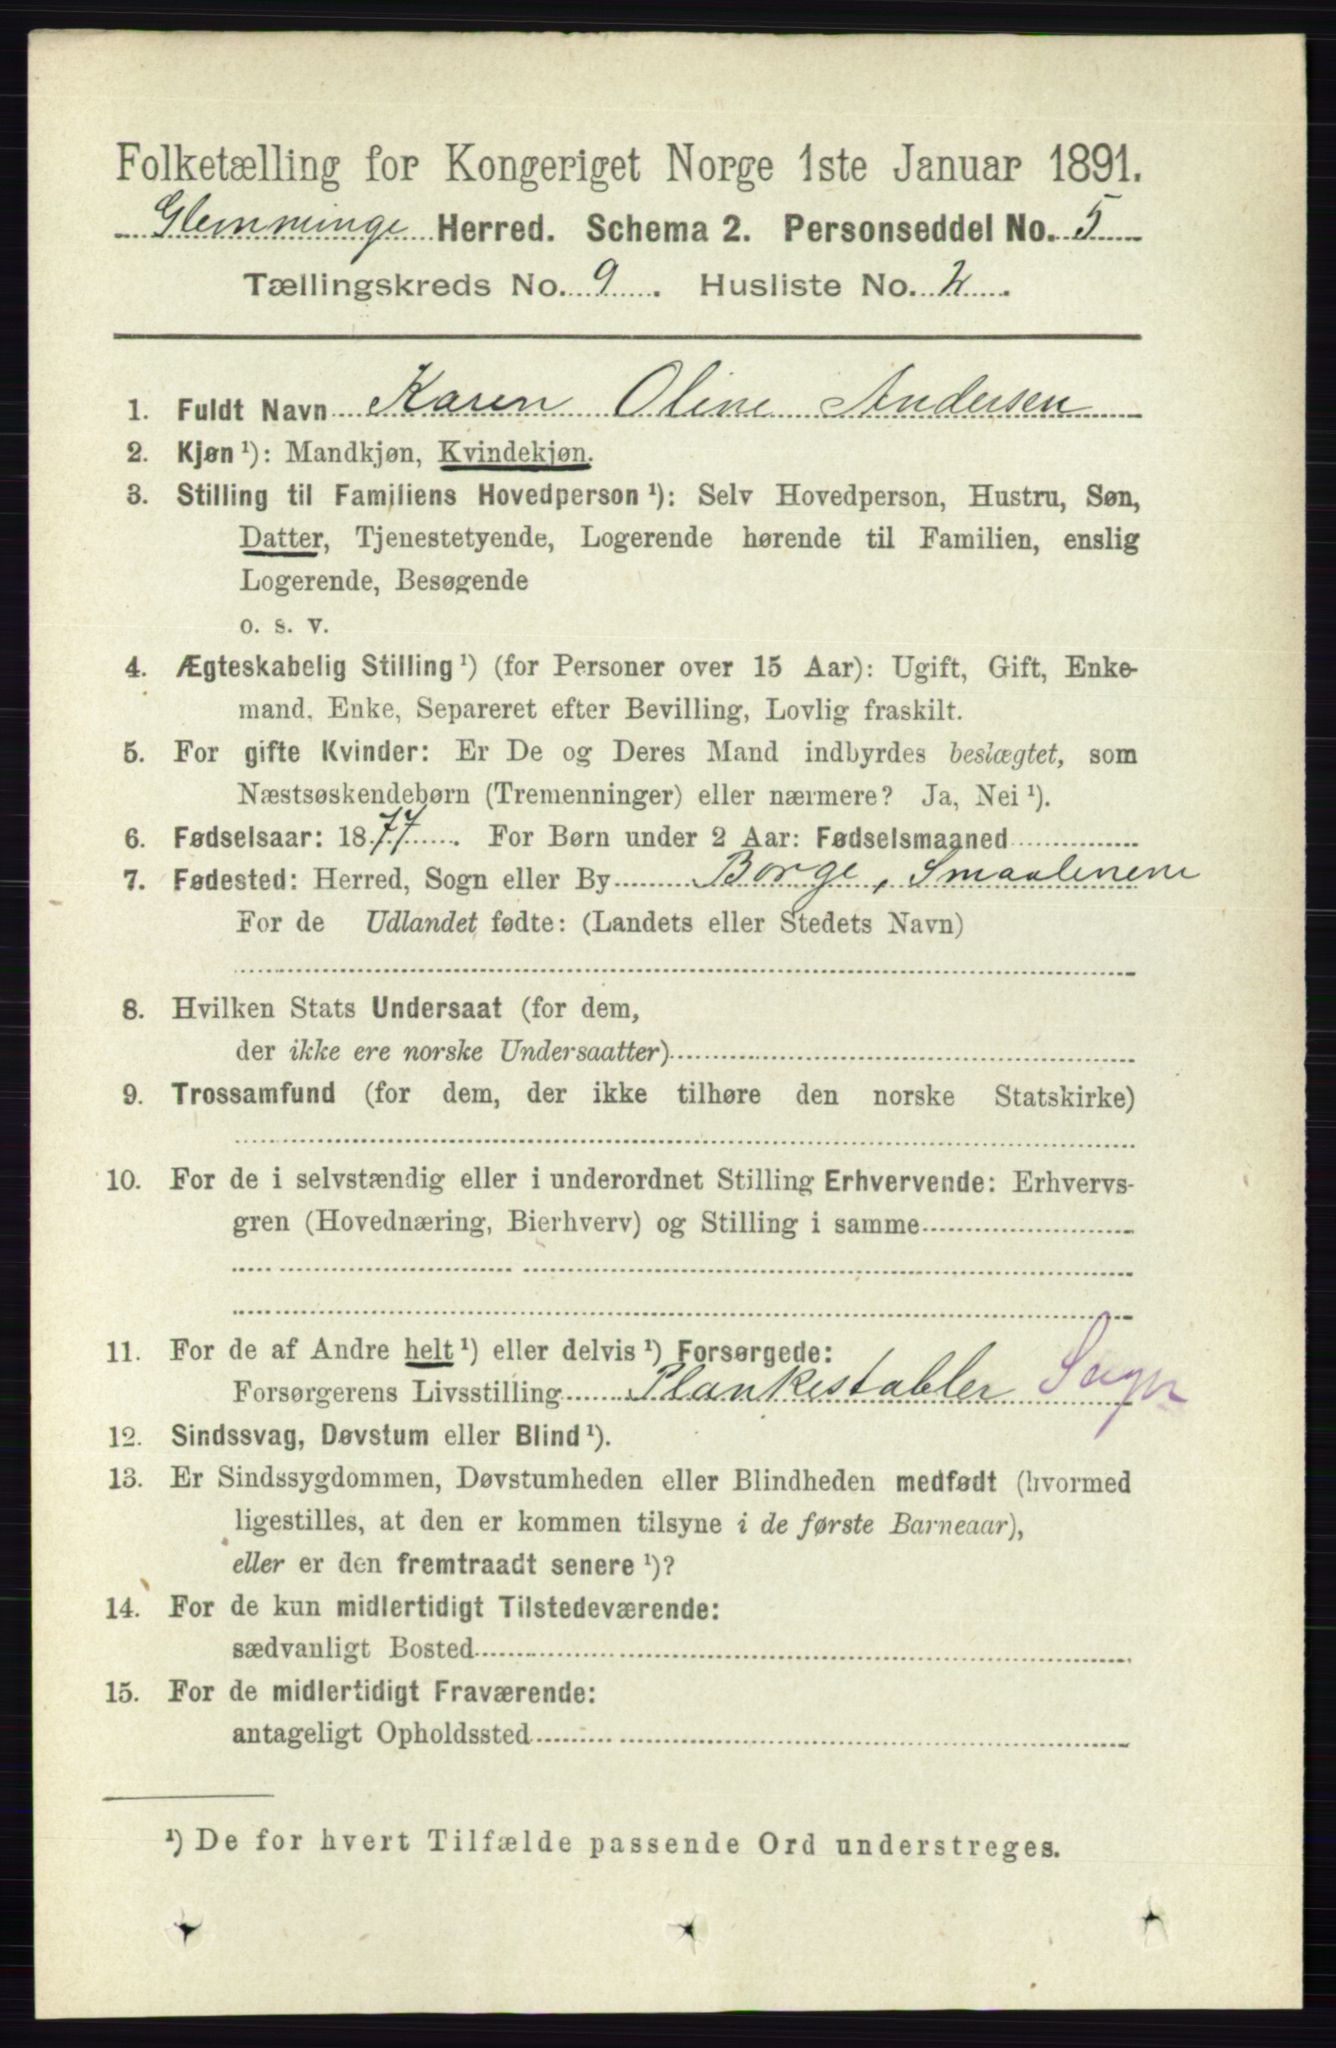 Folketælling for Kongeriget Norge 1ste Januar 1891.
Glemminge Herred. Schema 2. Personseddel No. 5
Tællingskreds No. 9 . Husliste No. 2 .
1. Fuldt Navn Karen Oline Andersen
2. Kjøn ¹): Mandkjøn, Kvindekjøn.
3. Stilling til Familiens Hovedperson ¹): Selv Hovedperson, Hustru, Søn,
Datter, Tjenestetyende, Logerende hørende til Familien, enslig
Logerende, Besøgende
o. s. v.
4. Ægteskabelig Stilling ¹) (for Personer over 15 Aar): Ugift, Gift, Enke-
mand, Enke, Separeret efter Bevilling, Lovlig fraskilt.
5. For gifte Kvinder: Er De og Deres Mand indbyrdes beslægtet, som
Næstsøskendebørn (Tremenninger) eller nærmere? Ja, Nei ¹).
6. Fødselsaar: 1877 . For Børn under 2 Aar: Fødselsmaaned
7. Fødested: Herred, Sogn eller By Borge, Smaalenene
For de Udlandet fødte: (Landets eller Stedets Navn)
8. Hvilken Stats Undersaat (for dem,
der ikke ere norske Undersaatter)
9. Trossamfund (for dem, der ikke tilhøre den norske Statskirke)
10. For de i selvstændig eller i underordnet Stilling Erhvervende: Erhvervs-
gren (Hovednæring, Bierhverv) og Stilling i samme
11. For de af Andre helt ¹) eller delvis ¹) Forsørgede:
Forsørgerens Livsstilling Plankestabler
12. Sindssvag, Døvstum eller Blind ¹).
13. Er Sindssygdommen, Døvstumheden eller Blindheden medfødt (hvormed
ligestilles, at den er kommen tilsyne i de første Barneaar),
eller er den fremtraadt senere ¹)?
14. For de kun midlertidigt Tilstedeværende:
sædvanligt Bosted
15. For de midlertidigt Fraværende:
antageligt Opholdssted
¹) De for hvert Tilfælde passende Ord understreges.